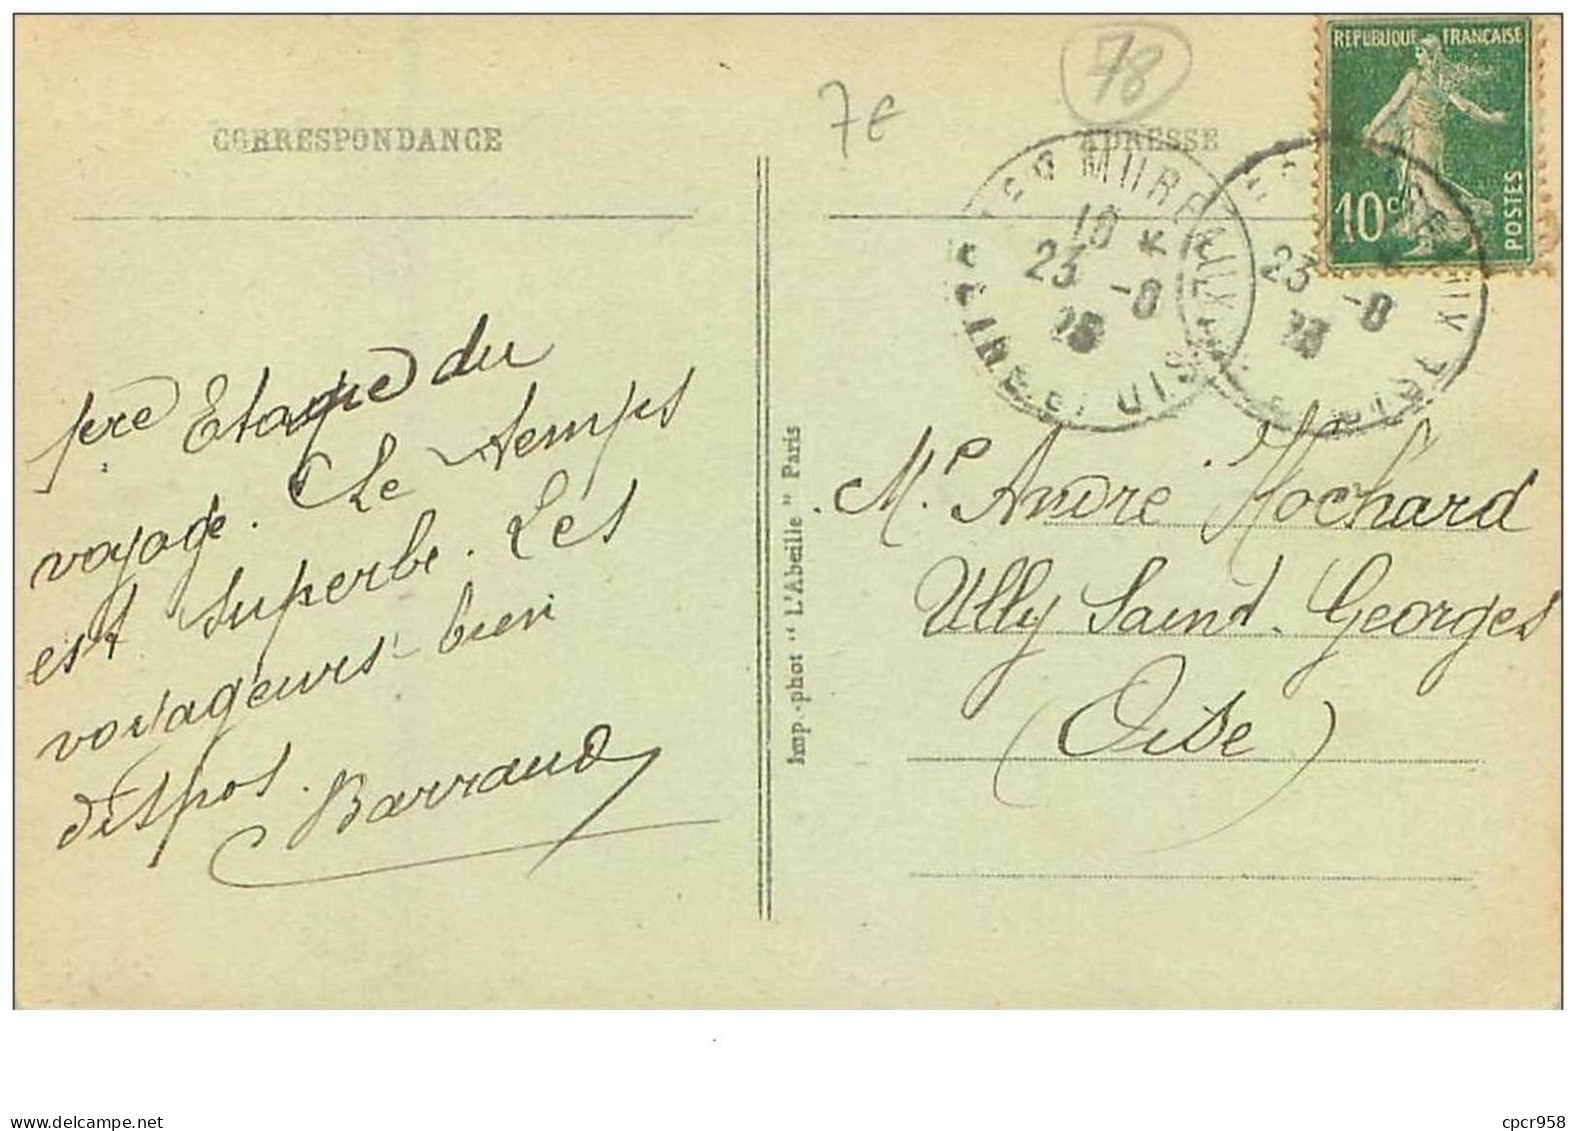 CORRESPONDANCE
ADRESSE
7€
78
REPUBLIQUE FRANÇAISE
10c
POSTES
MUREAUX
23 -8
23 -8
1ère Etape du
voyage. Le temps
est superbe. Les
voyageurs bien
dispos.
Barraud
Imp.-phot "L'Abeille" Paris
Mr André Hochard
Ully Saint. Georges
(Oise)
cpcr958